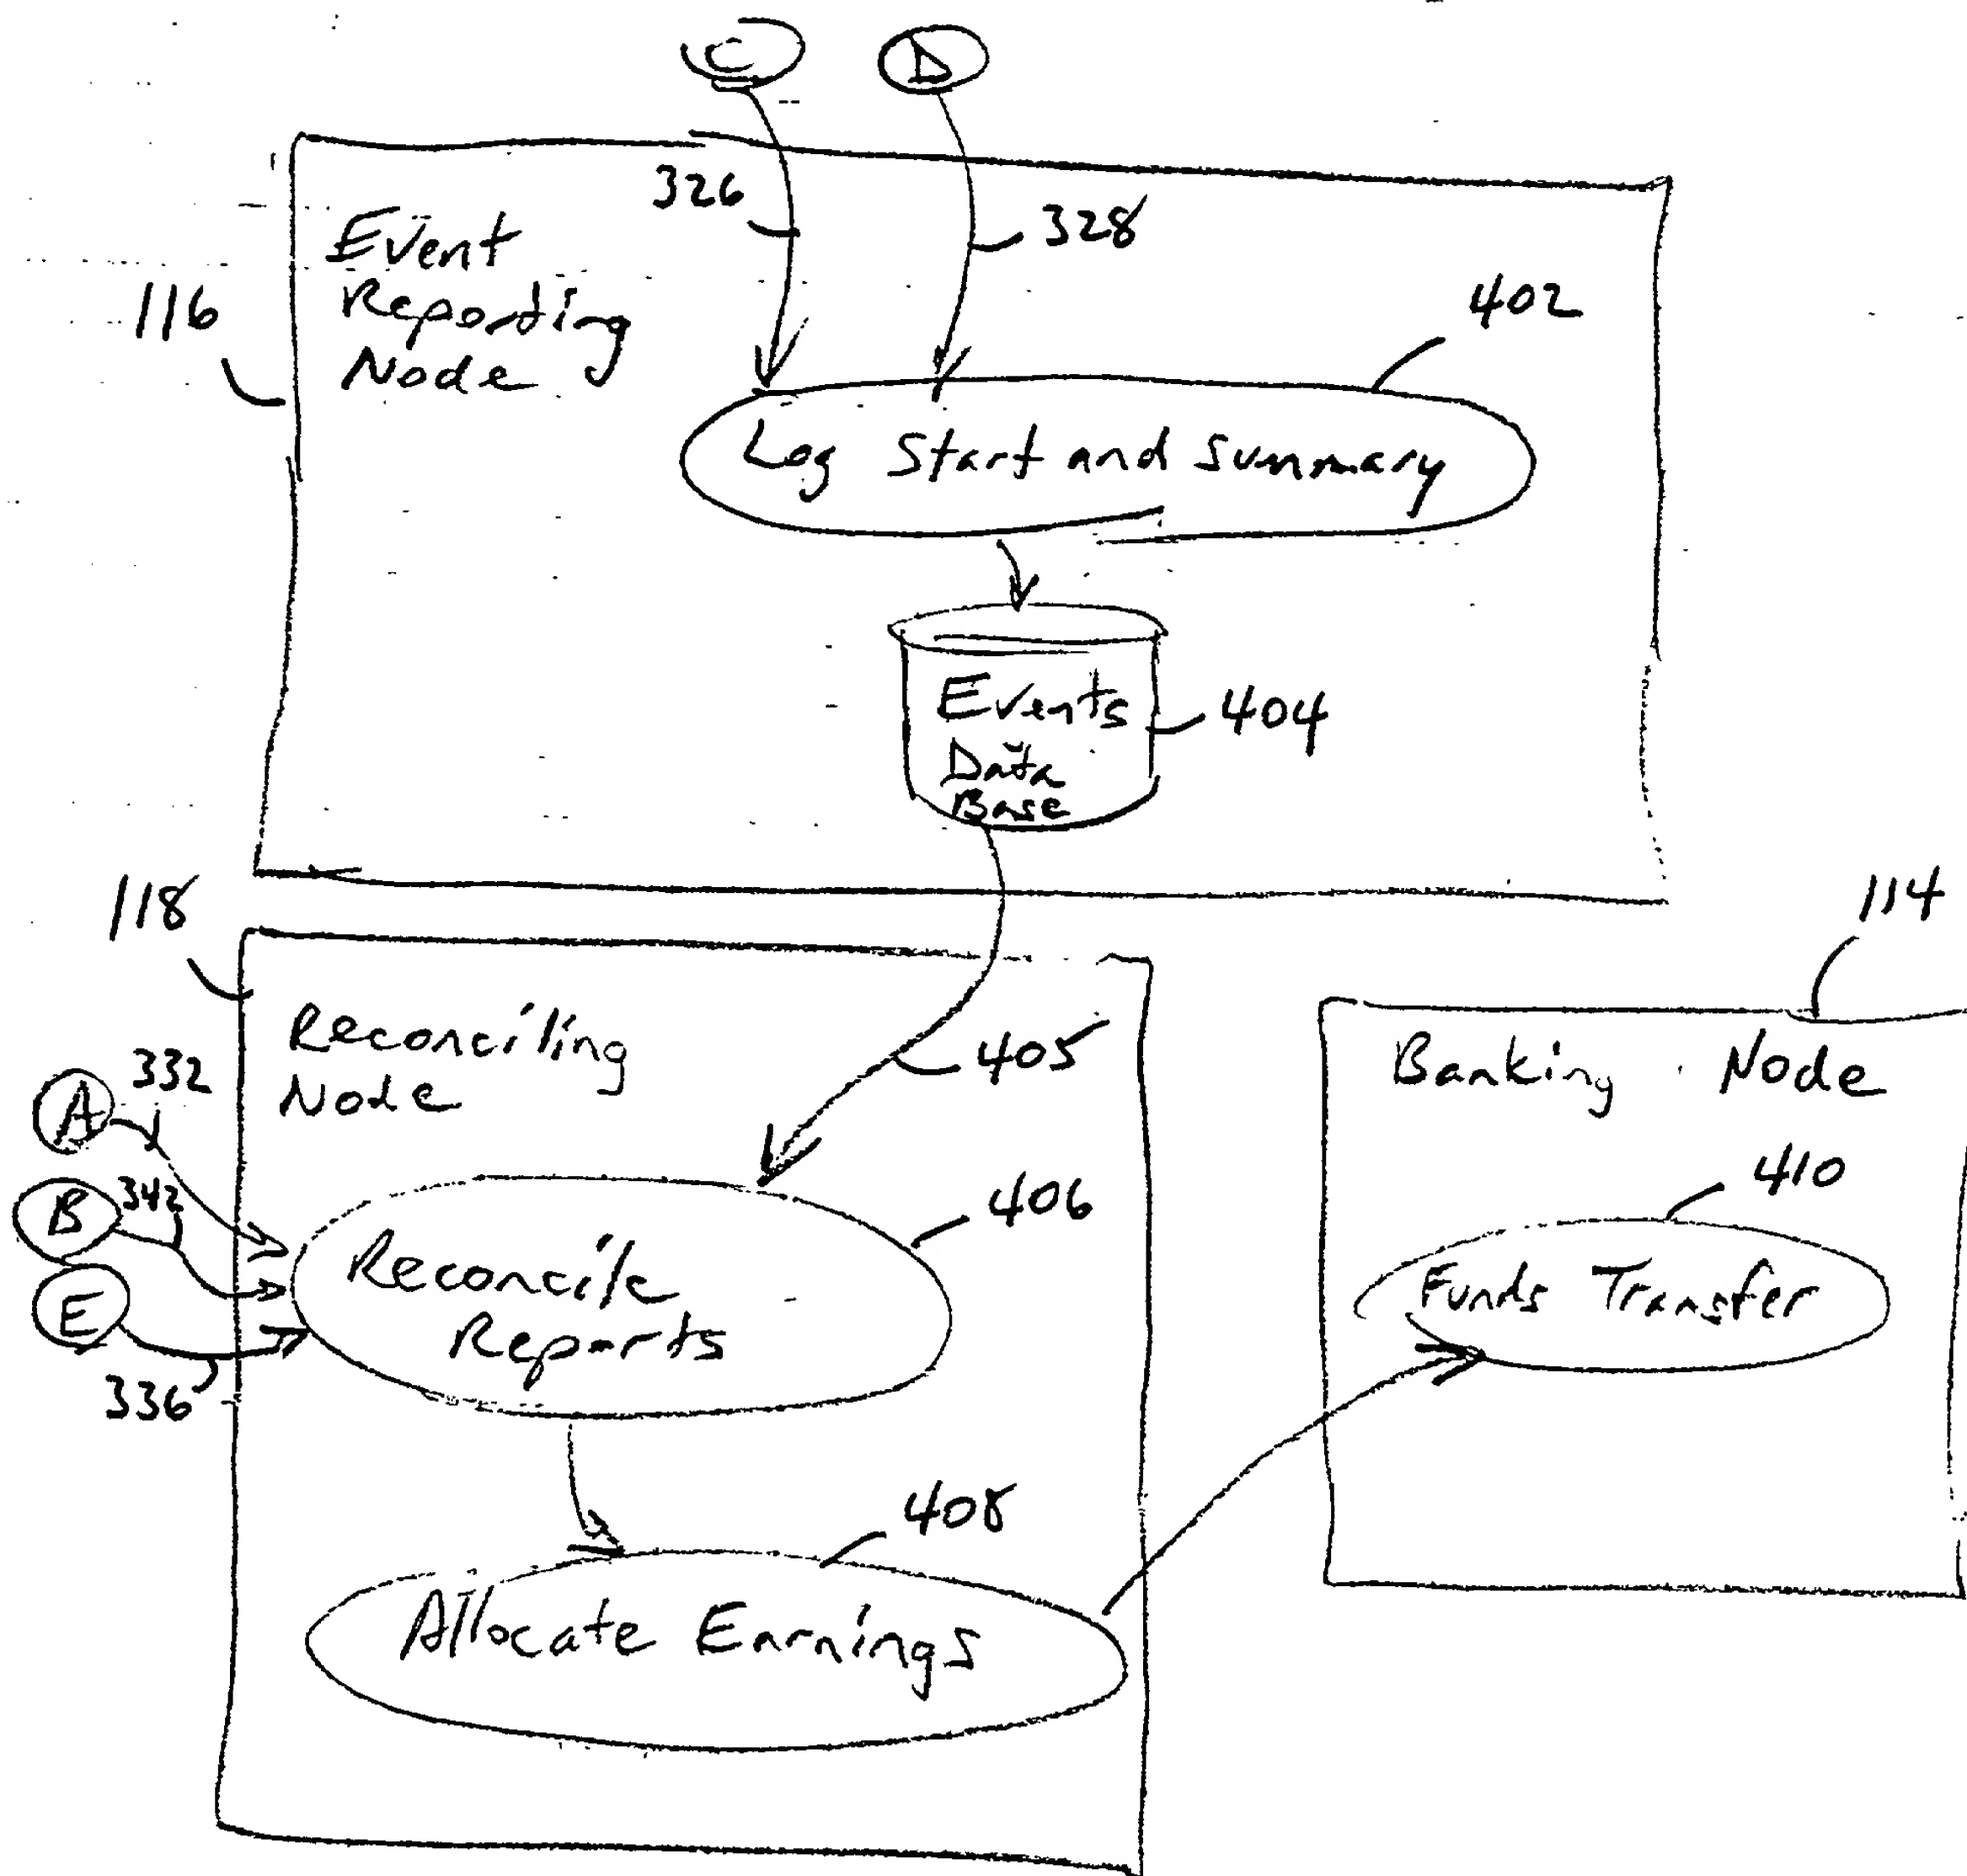 C
D
326
328
Event
Reporting
Node
116
402
Log Start and Summary
Events
Data
Base
404
118
114
Reconciling
Node
405
Banking Node
332
A
342
B
E
336
406
Reconcile
Reports
410
Funds Transfer
408
Allocate Earnings